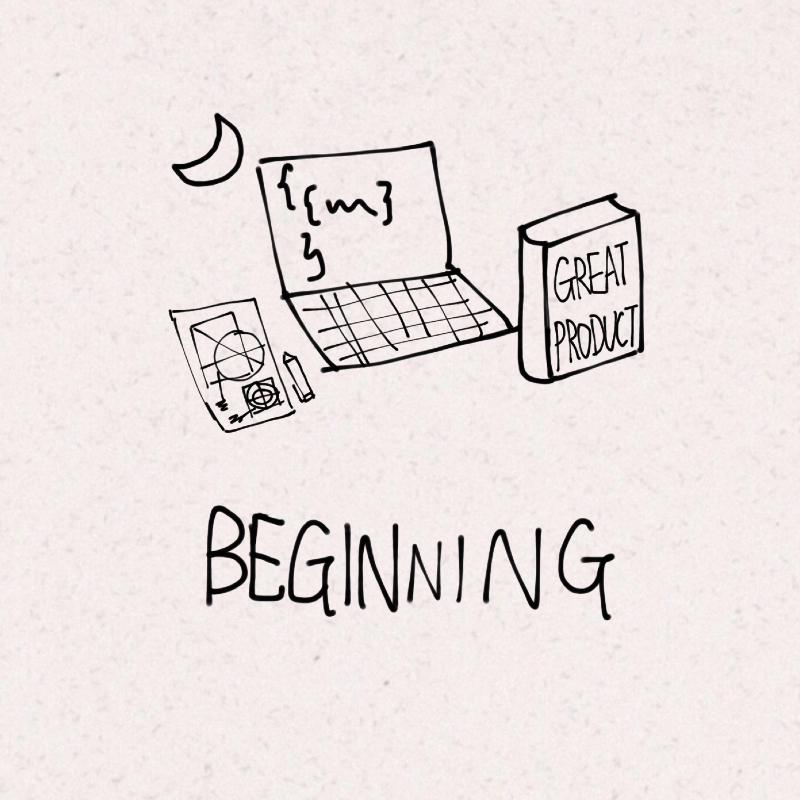 {
{m}
}
GREAT
PRODUCT
BEGINNING